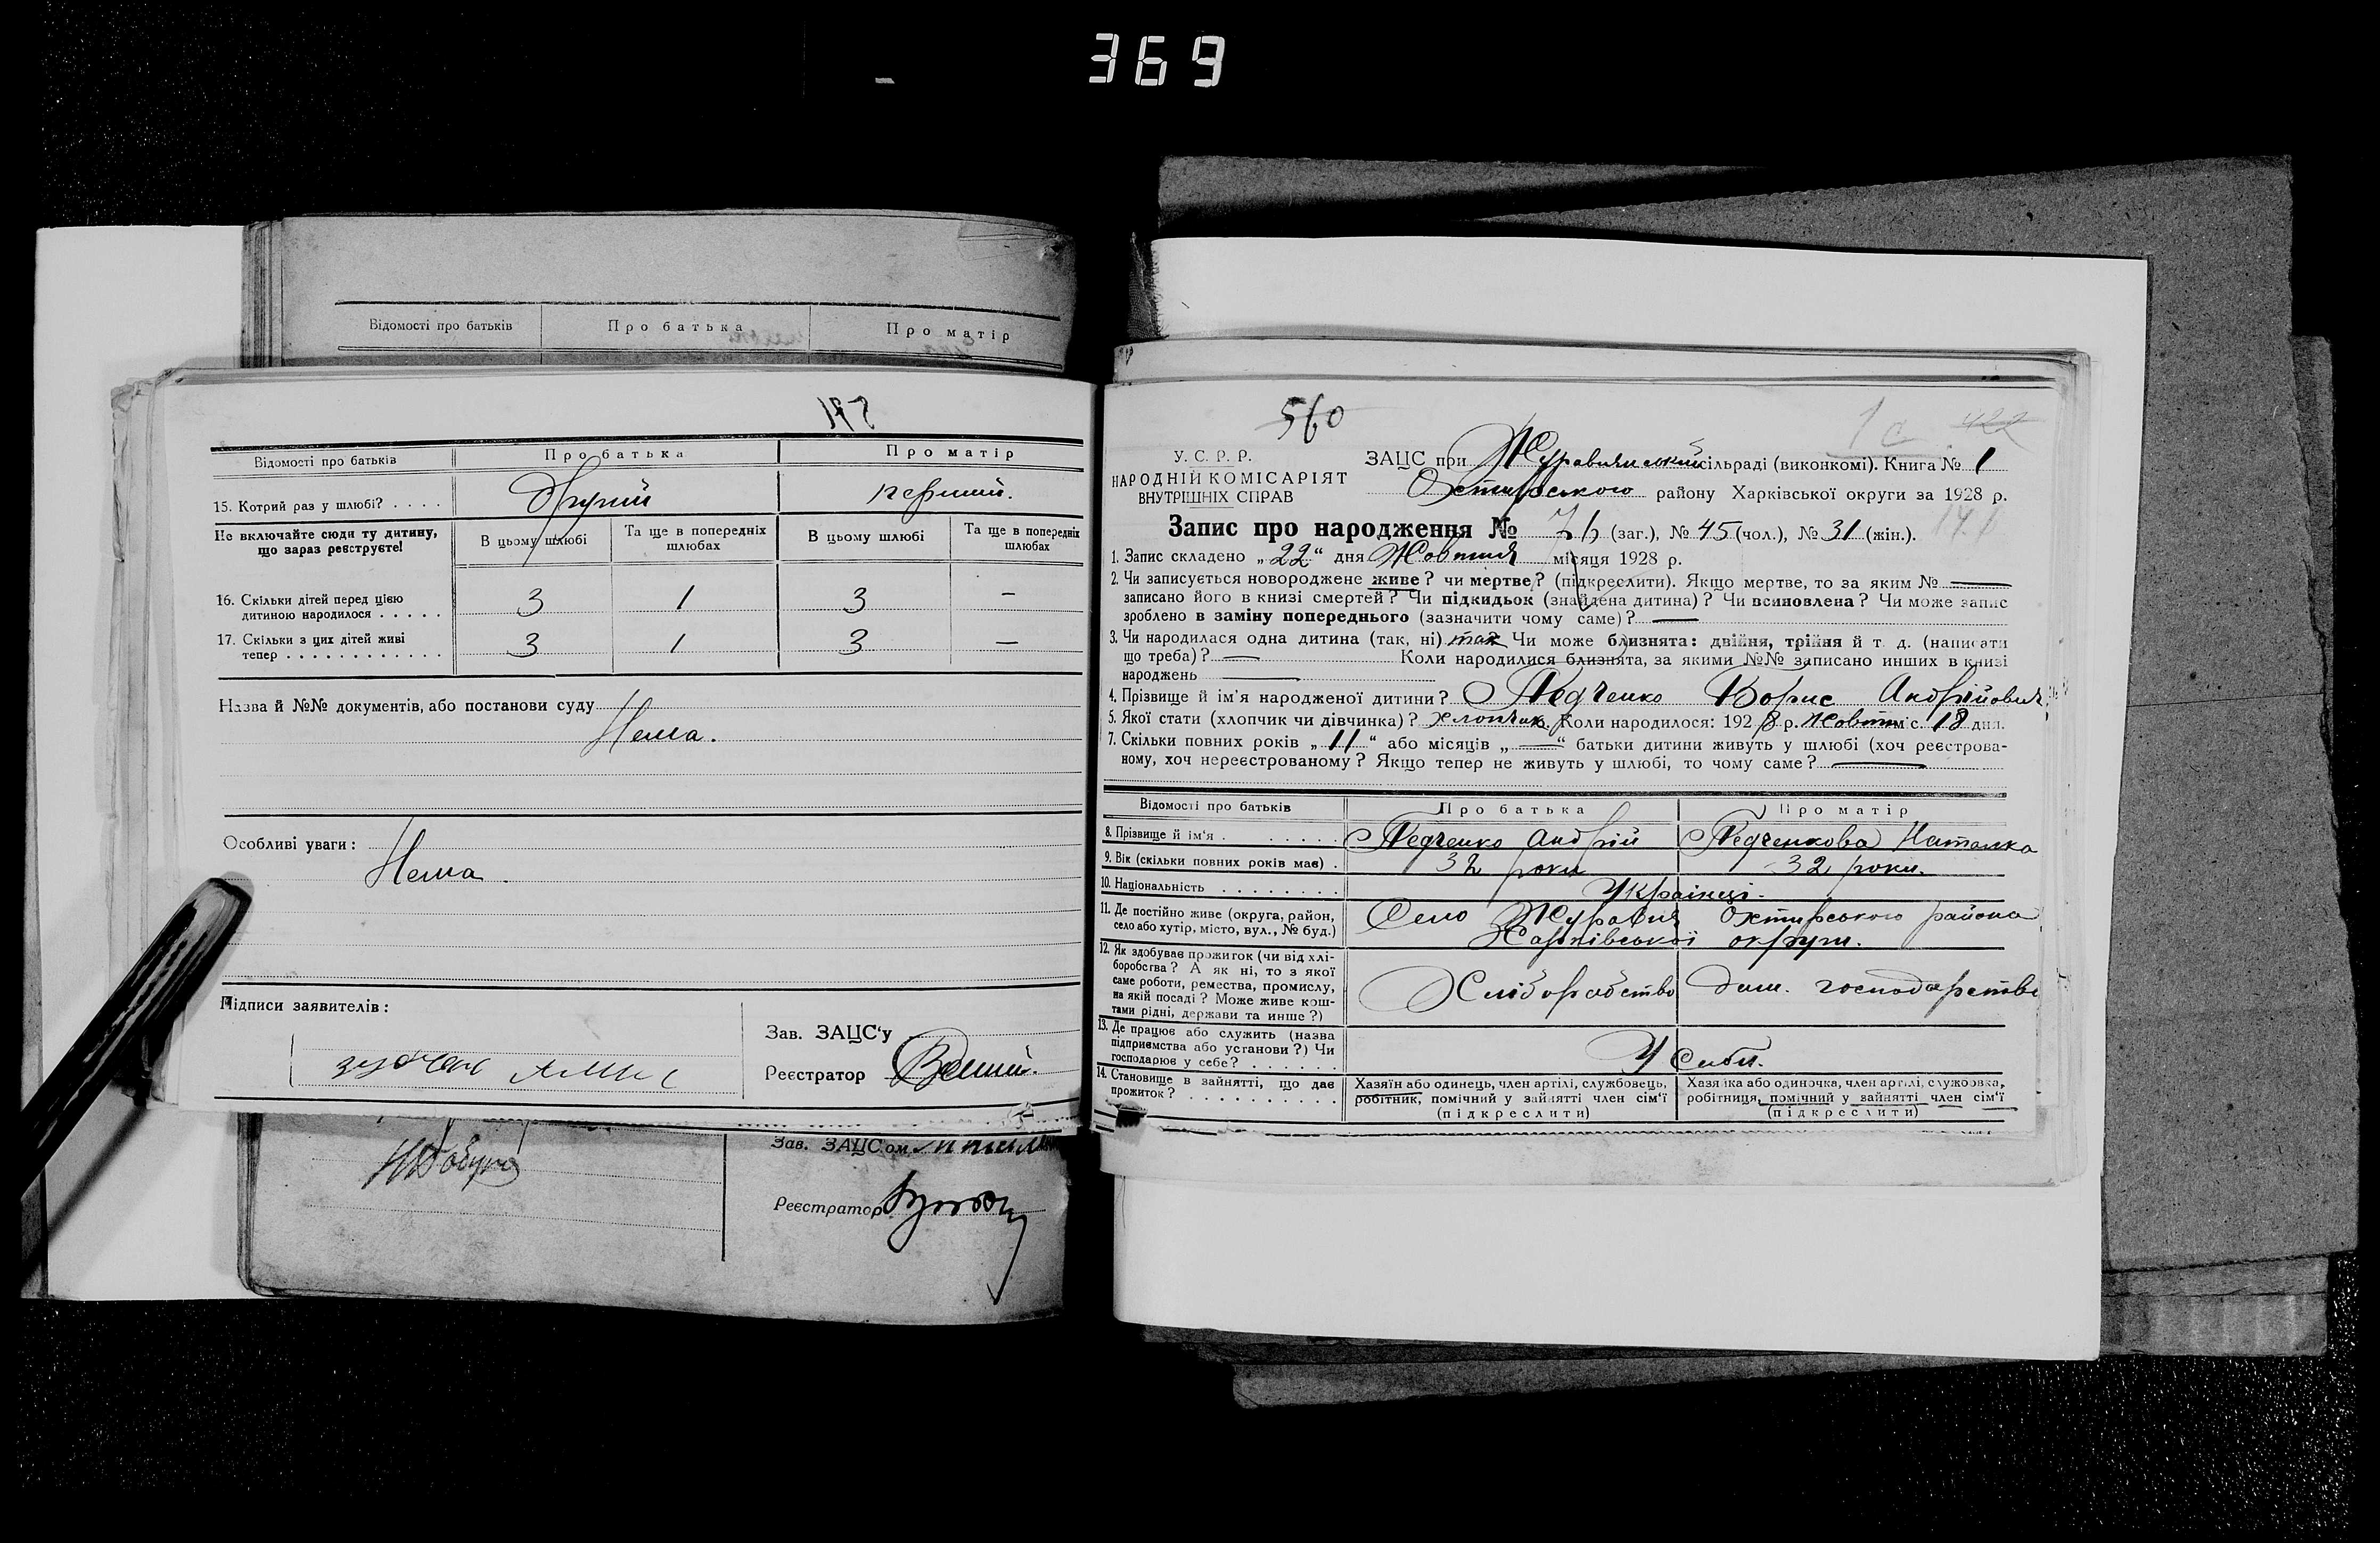 369
Відомості про батьків Про батька Про матір
Відомості про батьків Про батька Про матір
15. Котрий раз у шлюбі? . . . . Другий перший.
Не включайте сюди ту дитину, що зараз реєструєте! В цьому шлюбі Та ще в попередніх шлюбах В цьому шлюбі Та ще в попередніх шлюбах
16. Скільки дітей перед цією
дитиною народилося . . . . . 3 1 3 –
17. Скільки з цих дітей живі
тепер . . . . . . . . . . . . . 3 1 3 —
Назва й №№ документів, або постанови суду
Нема.
Особливі уваги:
Нема.
Підписи заявителів:
Зав. ЗАЦС‘у
Реєстратор
Зав. ЗАЦС‘ом
Реєстратор
560
1с 422
У. С. Р. Р.
НАРОДНІЙ КОМІСАРІЯТ
ВНУТРІШНІХ СПРАВ
ЗАЦС при Журавнянській сільраді (виконкомі). Книга № 1
Охтирського району Харківської округи за 1928 р.
Запис про народження № 76 (заг.), № 45 (чол.), № 31 (жін.).
1. Запис складено „22“ дня Жовтня місяця 1928 р.
2. Чи записується новороджене живе? чи мертве? (підкреслити). Якщо мертве, то за яким № —
записано його в книзі смертей? Чи підкидьок (знайдена дитина)? Чи всиновлена? Чи може запис
зроблено в заміну попереднього (зазначити чому саме)? —
3. Чи народилася одна дитина (так, ні) так Чи може близнята: двійня, трійня й т. д. (написати
що треба)? — Коли народилися близнята, за якими №№ записано инших в книзі
народжень —
4. Прізвище й ім‘я народженої дитини? Педченко Борис Андрійович
5. Якої стати (хлопчик чи дівчинка)? хлопчик. Коли народилося: 1928 р. Жовтн міс. 18 дня.
7. Скільки повних років „11“ або місяців „—“ батьки дитини живуть у шлюбі (хоч реєстрова-
ному, хоч нереєстрованому? Якщо тепер не живуть у шлюбі, то чому саме? —
Відомості про батьків Про батька Про матір
8. Прізвище й ім‘я . . . . . . Педченко Андрій Педченкова Наталка
9. Вік (скільки повних років має) . 32 роки 32 роки.
10. Національність . . . . . . . . Українці.
11. Де постійно живе (округа, район,
село або хутір, місто, вул., № буд.) Село Журавня Охтирського района
Харківської округи.
12. Як здобуває прожиток (чи від хлі-
боробства? А як ні, то з якої
саме роботи, ремества, промислу,
на якій посаді? Може живе кош-
тами рідні, держави та инше?) Хліборобство дом. господарство
13. Де працює або служить (назва
підприємства або установи?) Чи
господарює у себе? . . . . . . У себе.
14. Становище в зайнятті, що дає
прожиток? . . . . . . . . . .
Хазяїн або одинець, член артілі, службовець,
робітник, помічний у зайнятті член сім‘ї
(підкреслити)
Хазяїка або одиночка, член артілі, службовка,
робітниця, помічний у зайнятті член сім‘ї
(підкреслити)